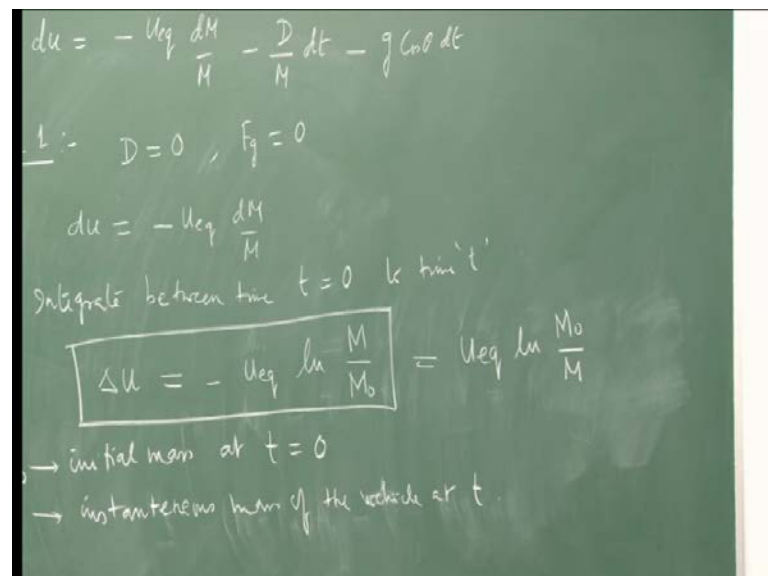 du = - Ueq dM/M - D/M dt - g Cosθ dt
1 :- D = 0 , Fg = 0
du = - Ueq dM/M
Integrate between time t = 0 to time 't'
ΔU = - Ueq ln M/M₀ = Ueq ln M₀/M
→ initial mass at t = 0
→ instanteneous mass of the vehicle at t.